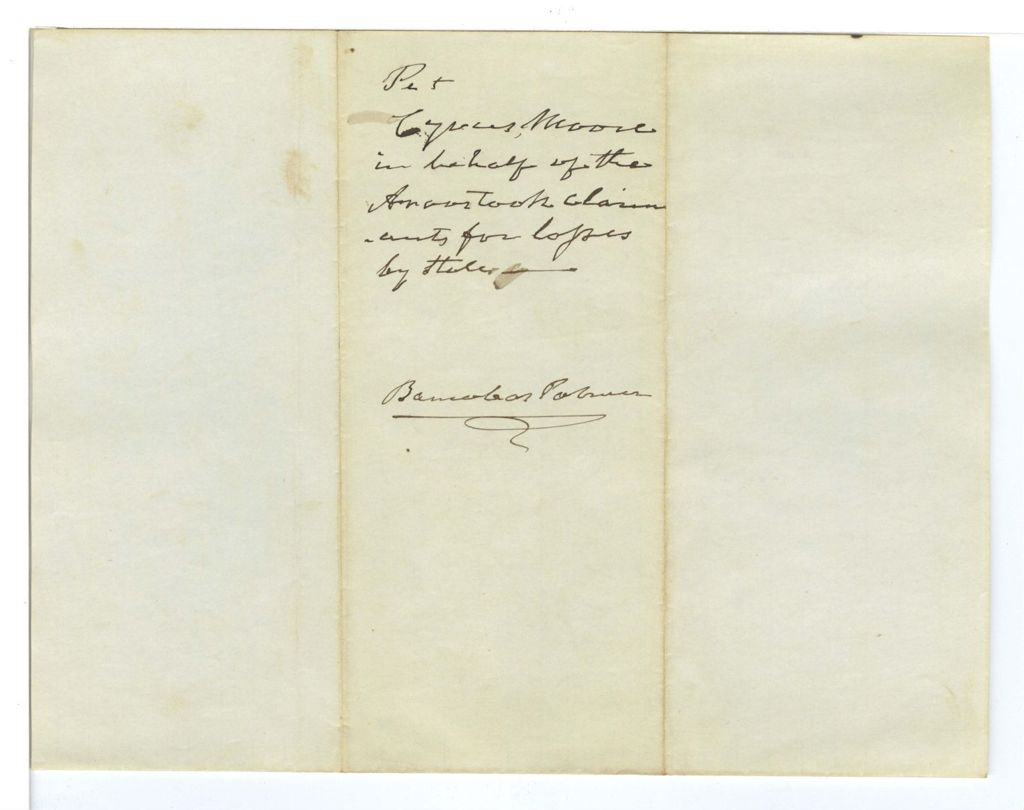 Pet
Cyrus Moore
in behalf of the
Aroostook claim
-ants for losses
by
Barnabas Palmer